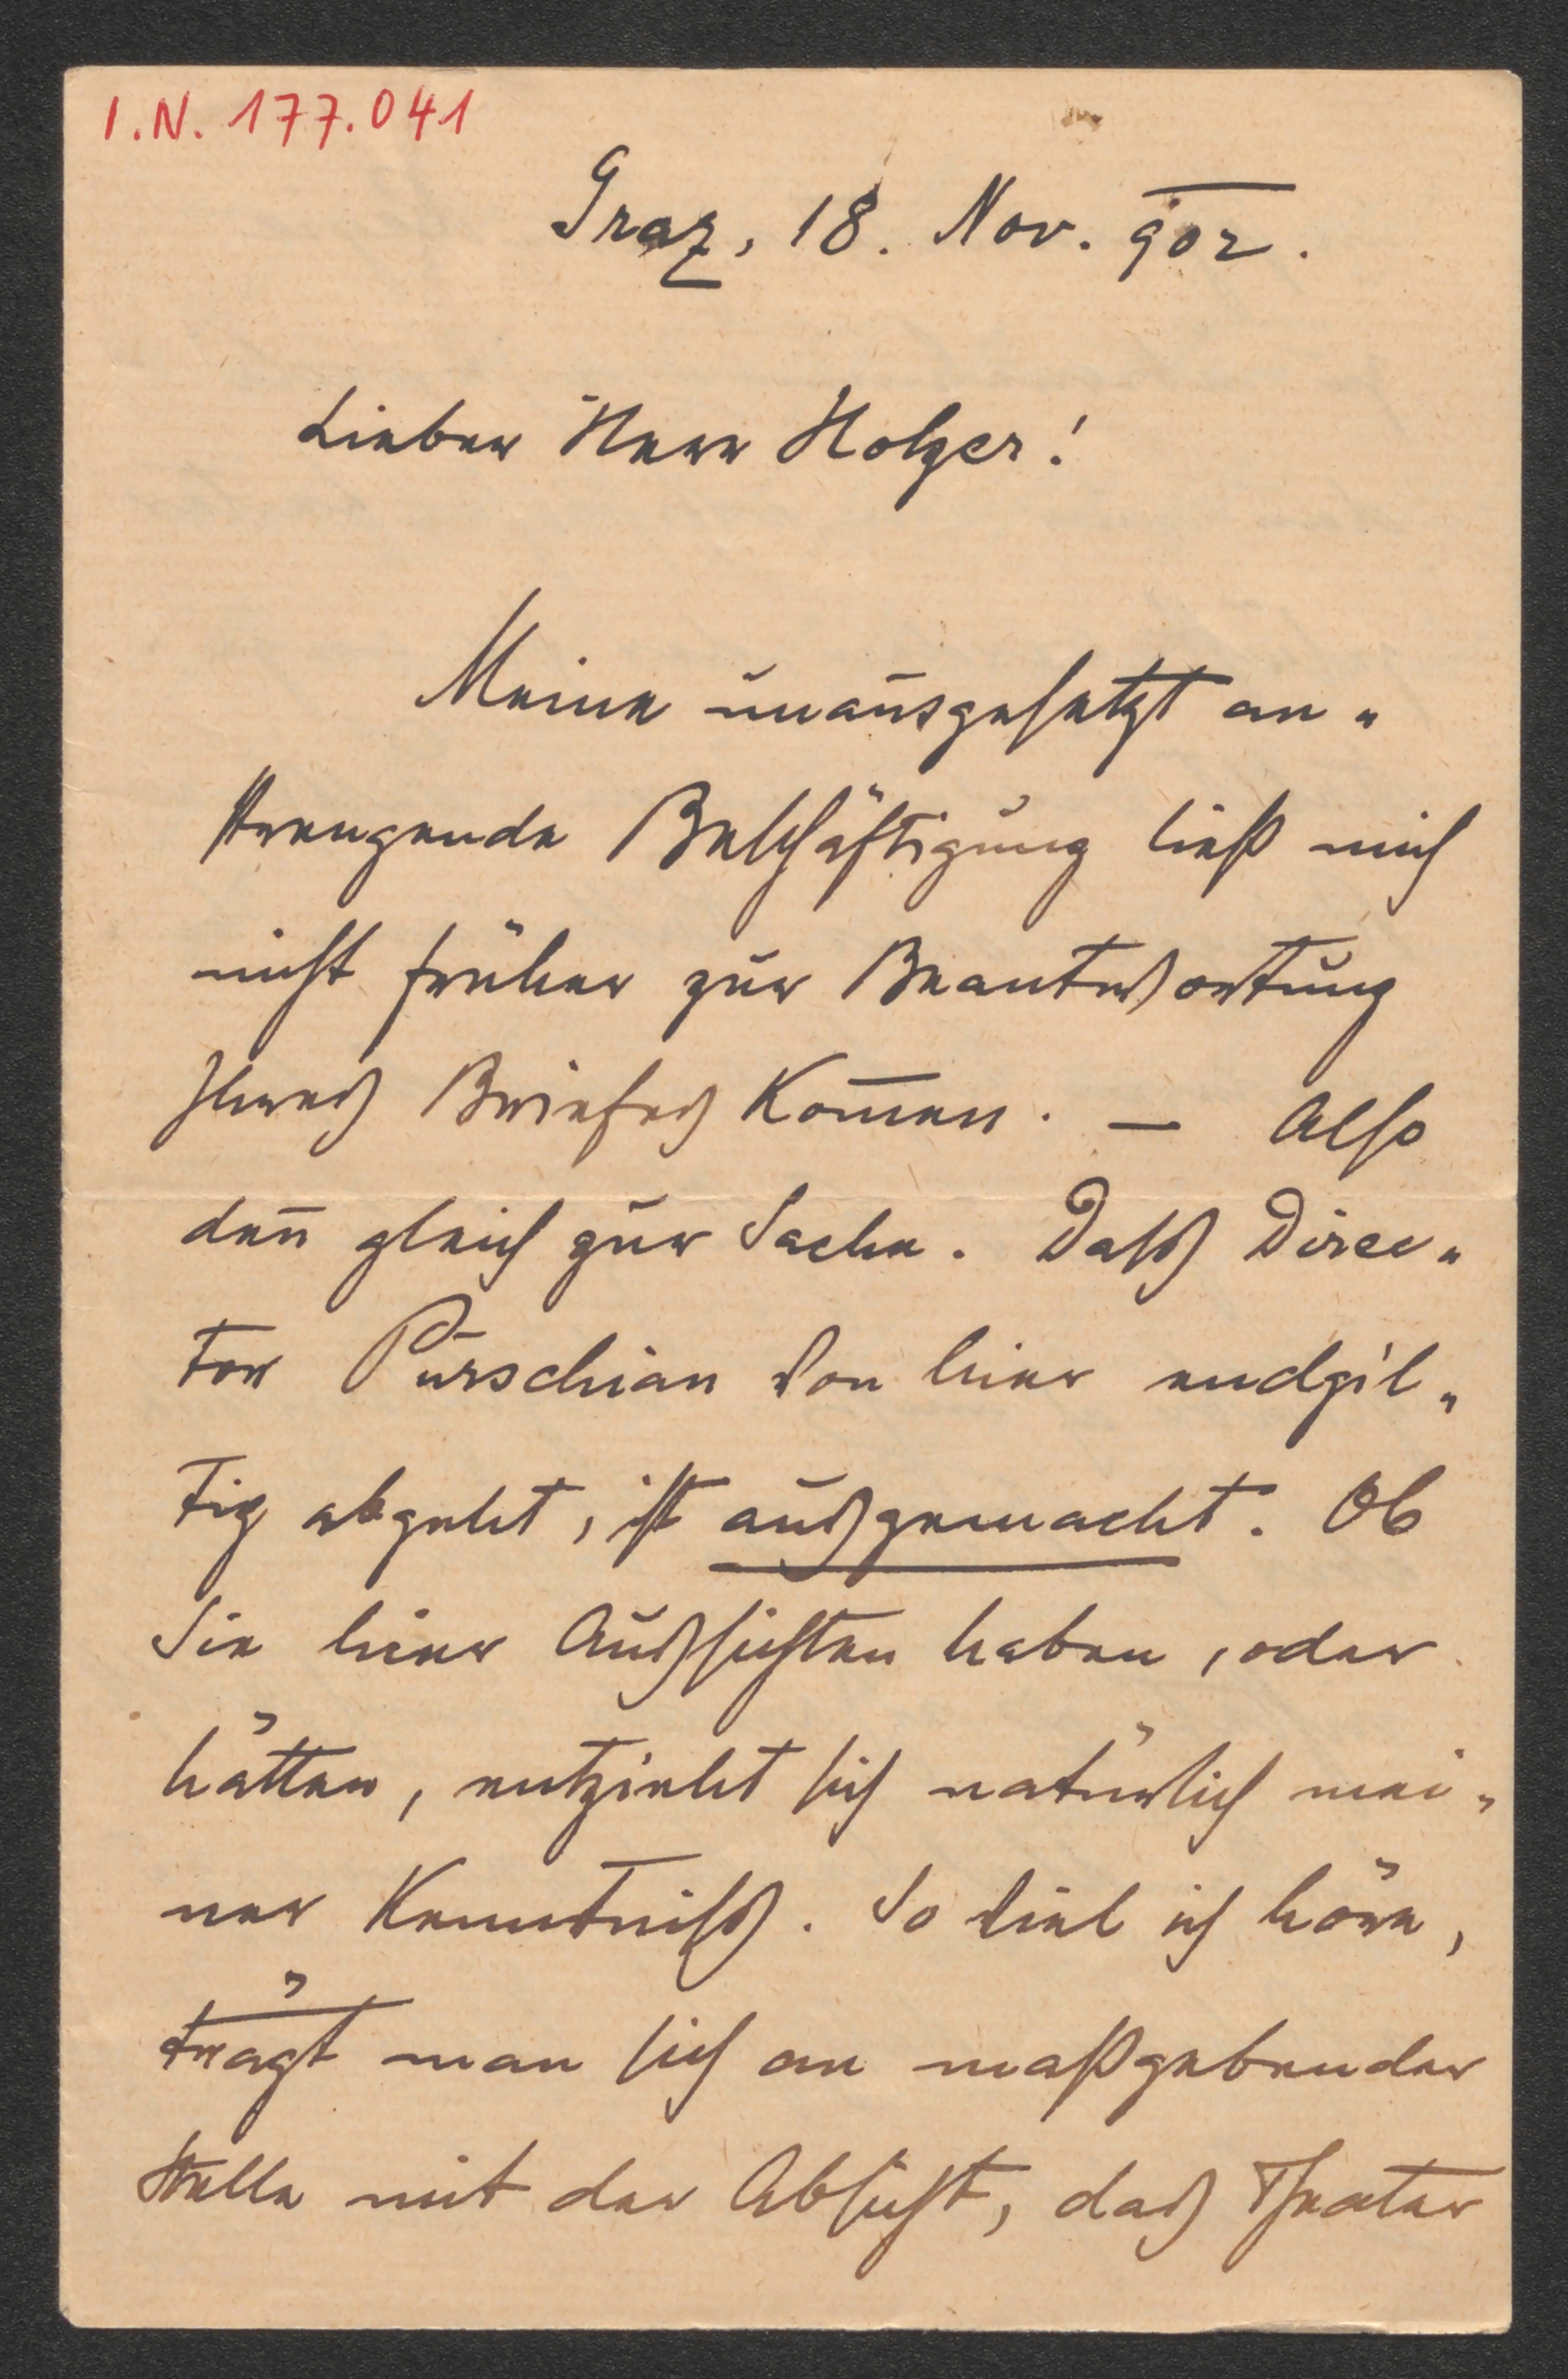 I.N. 177.041
Graz, 18. Nov. 902.
Lieber Herr Holzer!
Meine unausgesetzt an„
strengende Beschäftigung ließ mich
nicht früher zur Beantwortung
Ihres Briefes kom̅en. — Also
den̅ gleich zur Sache. Dass Direc„
tor Purschian von hier endgil„
tig abgeht, ist ausgemacht. Ob
Sie hier Aussichten haben, oder
hätten, entzieht sich natürlich mei„
ner Kenntniss. So viel ich höre,
trägt man sich an maßgebender
Stelle mit der Absicht, das Theater